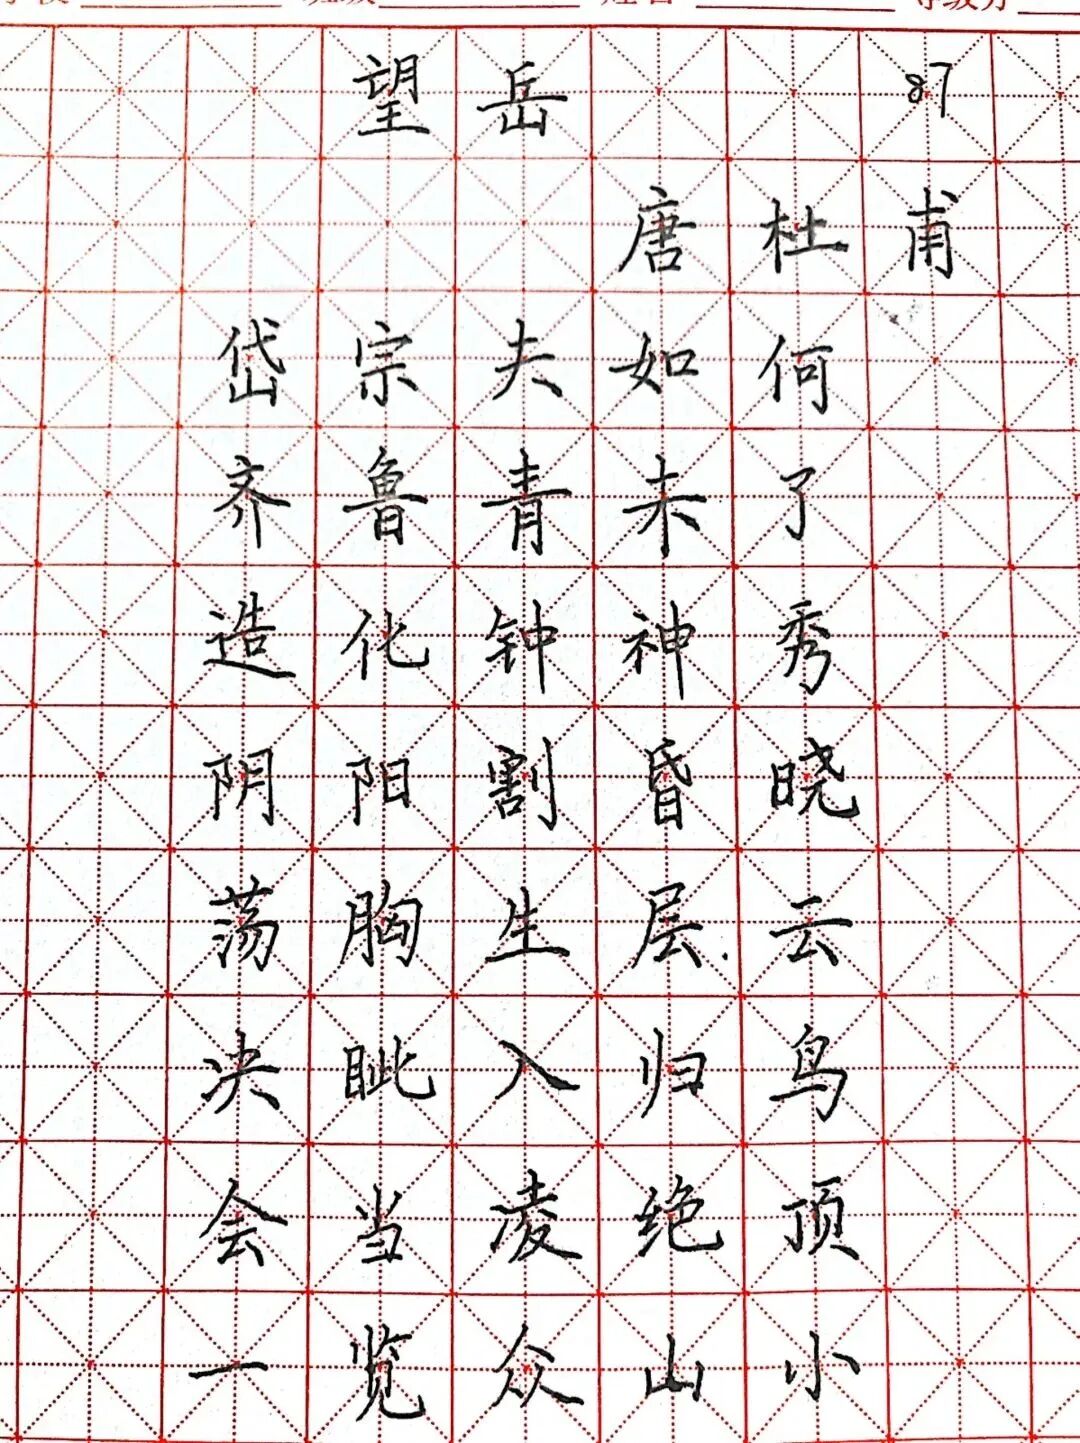 望岳 87
唐杜甫
岱宗夫如何
齐鲁青未了
造化钟神秀
阴阳割昏晓
荡胸生层云
决眦入归鸟
会当凌绝顶
一览众山小